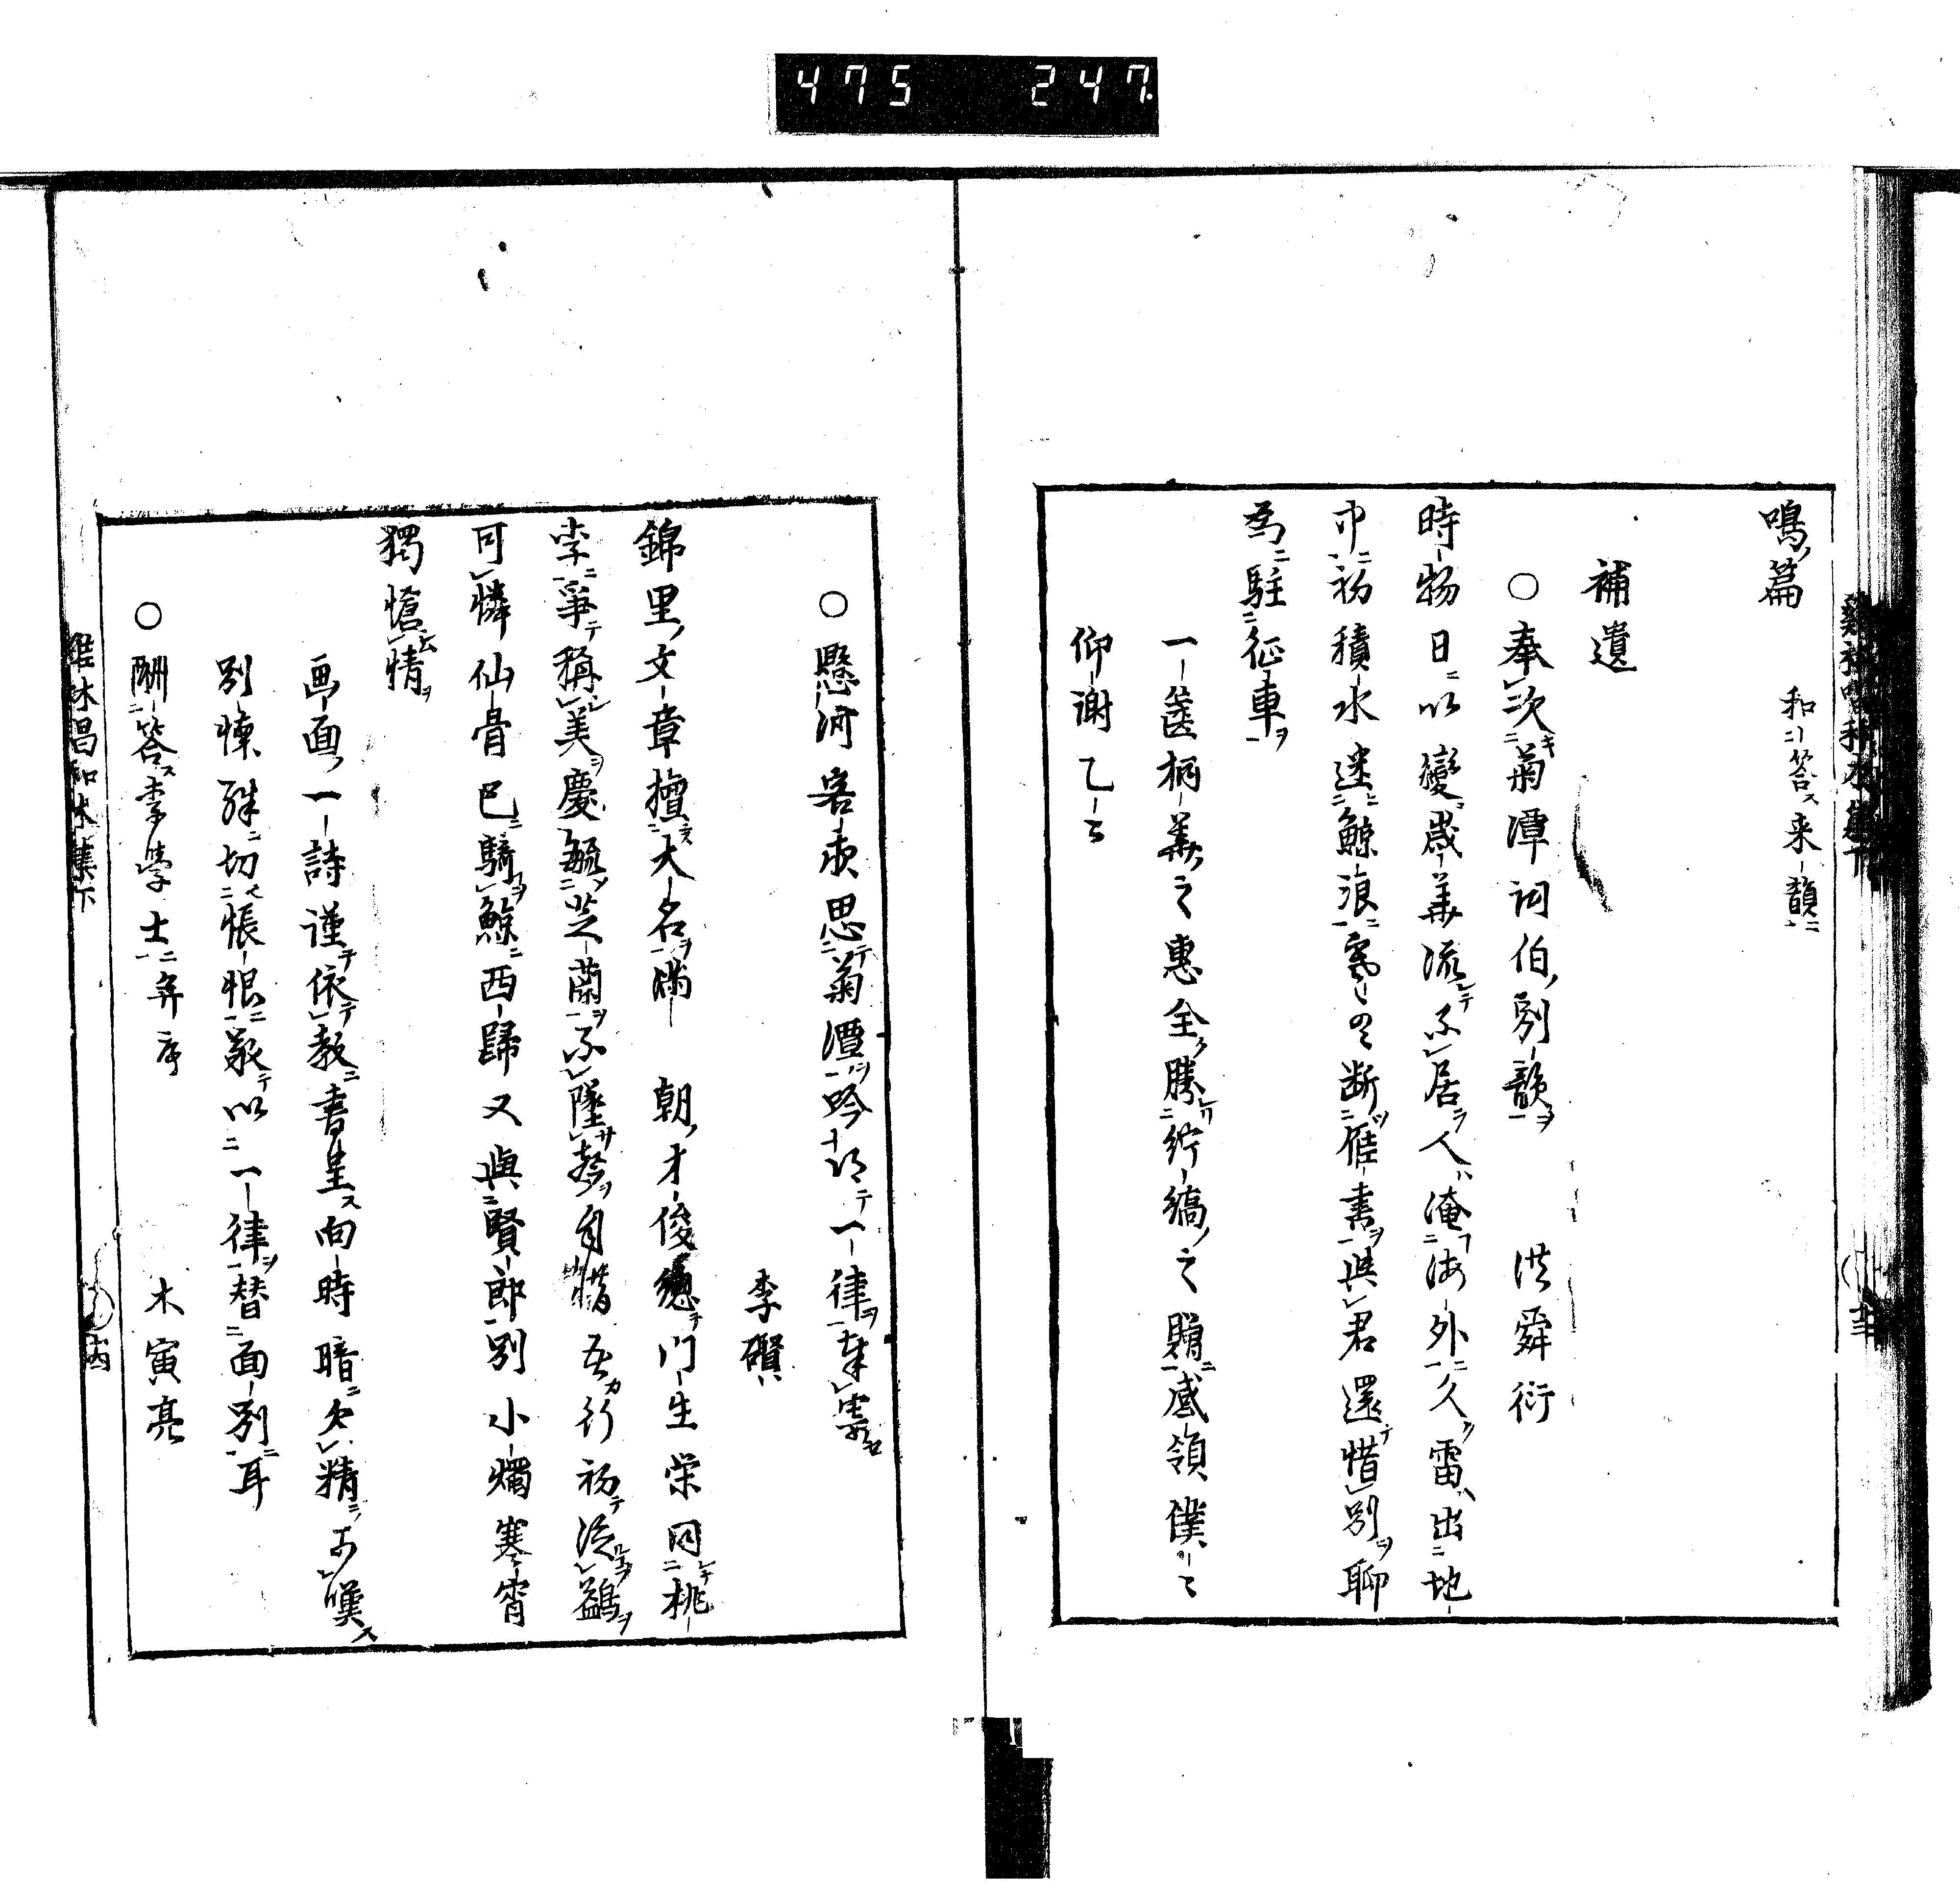 475 247.
鳴篇 和答来韻
補遺
○奉次菊潭詞伯別韻 洪舜衍
時物日以變歳華流不居人淹海外久雷出地
中初積水迷鯨浪寒断雁書與君還惜別聊
為駐征車
一篋柄華之惠全勝紵縞之贈感領僕々
仰謝
○懸河客夜思菊潭吟一律
李礥
錦里文章擅大名満 朝才俊門生栄同桃
李爭稱美慶毓芝蘭不墜聲自惜吾行初泛鷁
可憐仙骨已騎鯨西歸又與賢郎別小燭寒宵
獨愴情
画面一詩謹依教書呈而時暗欠精可嘆
別懐殊切悵恨敢以一律替面別耳
○酬答李學士并序 木寅亮